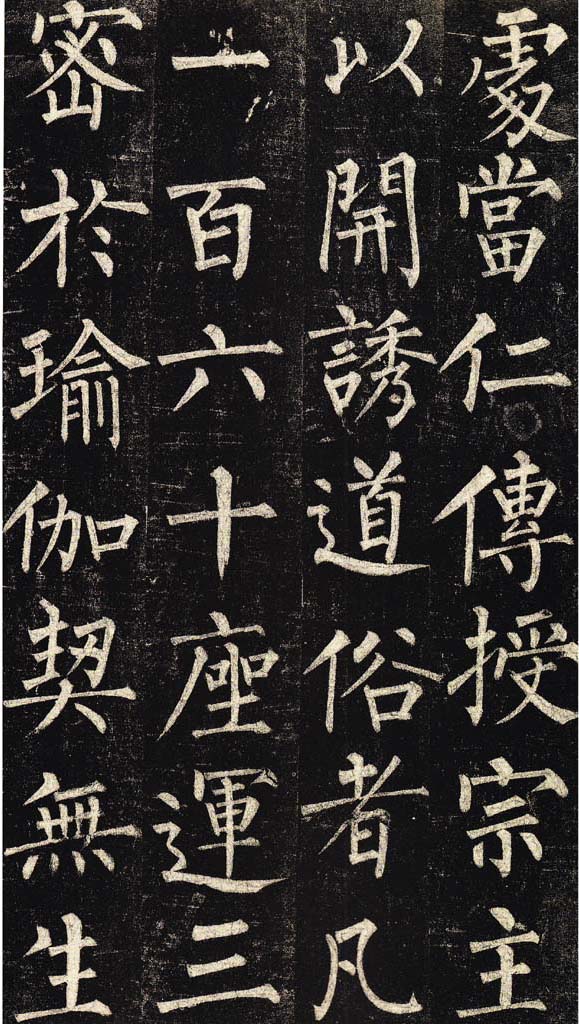 處當仁傳授宗主
以開誘道俗者凡
一百六十座運三
密於瑜伽契無生